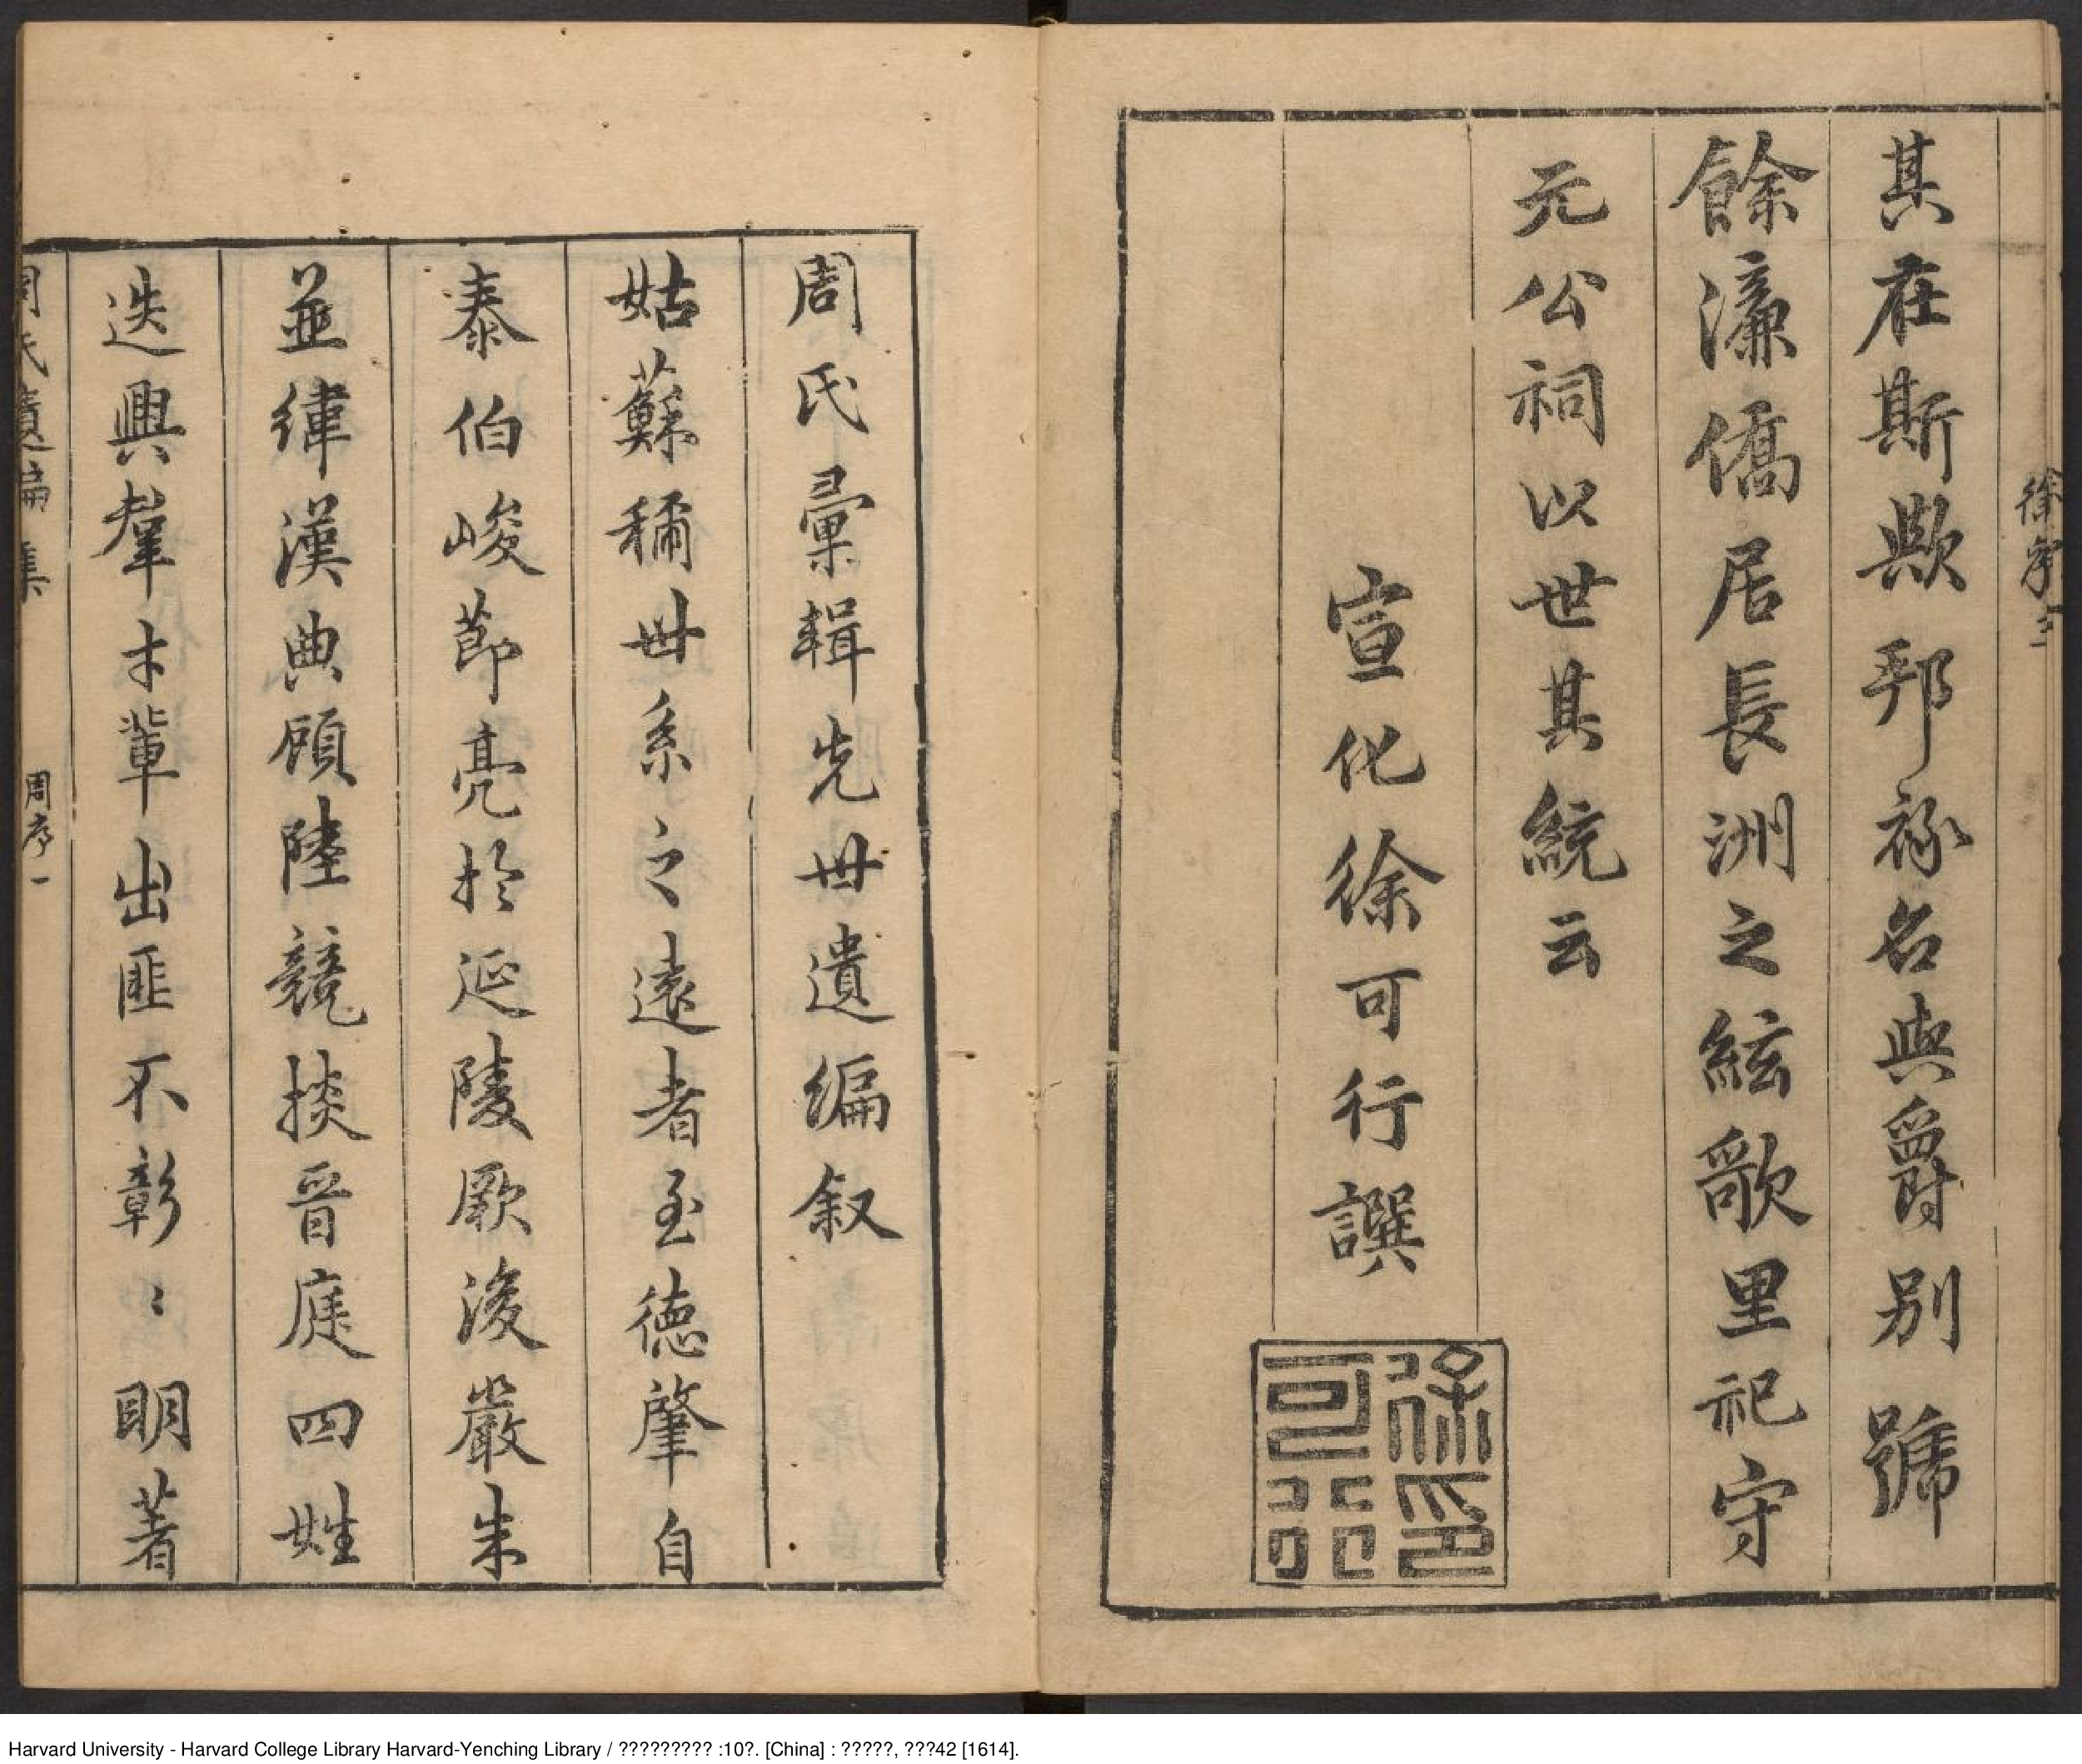 徐序三
其在斯歟邦祢名與爵別號
餘濂僑居長洲之絃歌里祀守
元公祠以世其統云
宣化徐可行譔
徐可行印
周氏彙輯先世遺編叙
姑蘇稱世系之遠者至德肇自
泰伯峻莭亮於延陵厥後嚴朱
並緯漢典頋陸競掞晉庭四姓
迭興羣才輩出匪不彰〻明著
周氏遺編集
周序一
Harvard University - Harvard College Library Harvard-Yenching Library / ????????? :10?. [China] : ?????, ???42 [1614].